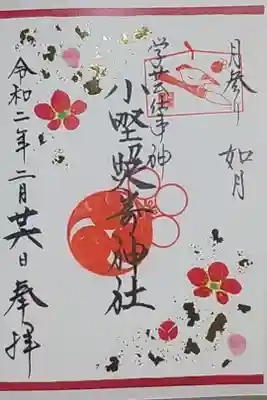 月参り 如月
学芸仕事神
小野照崎神社
令和二年二月廿六日 奉拝